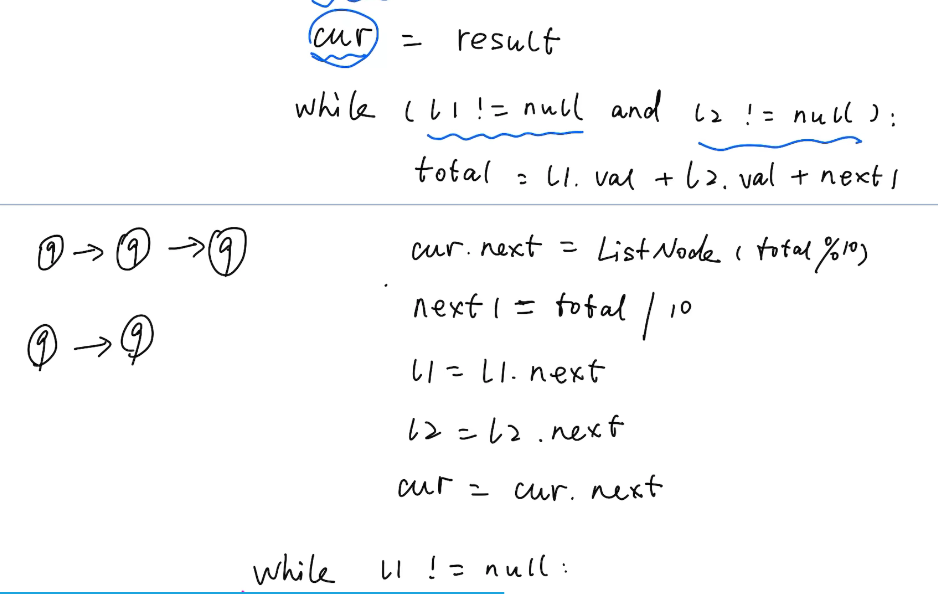 cur = result
while (l1 != null and l2 != null):
total = l1.val + l2.val + next1
9 → 9 → 9
cur.next = ListNode(total%10)
next1 = total / 10
9 → 9
l1 = l1.next
l2 = l2.next
cur = cur.next
while l1 != null: